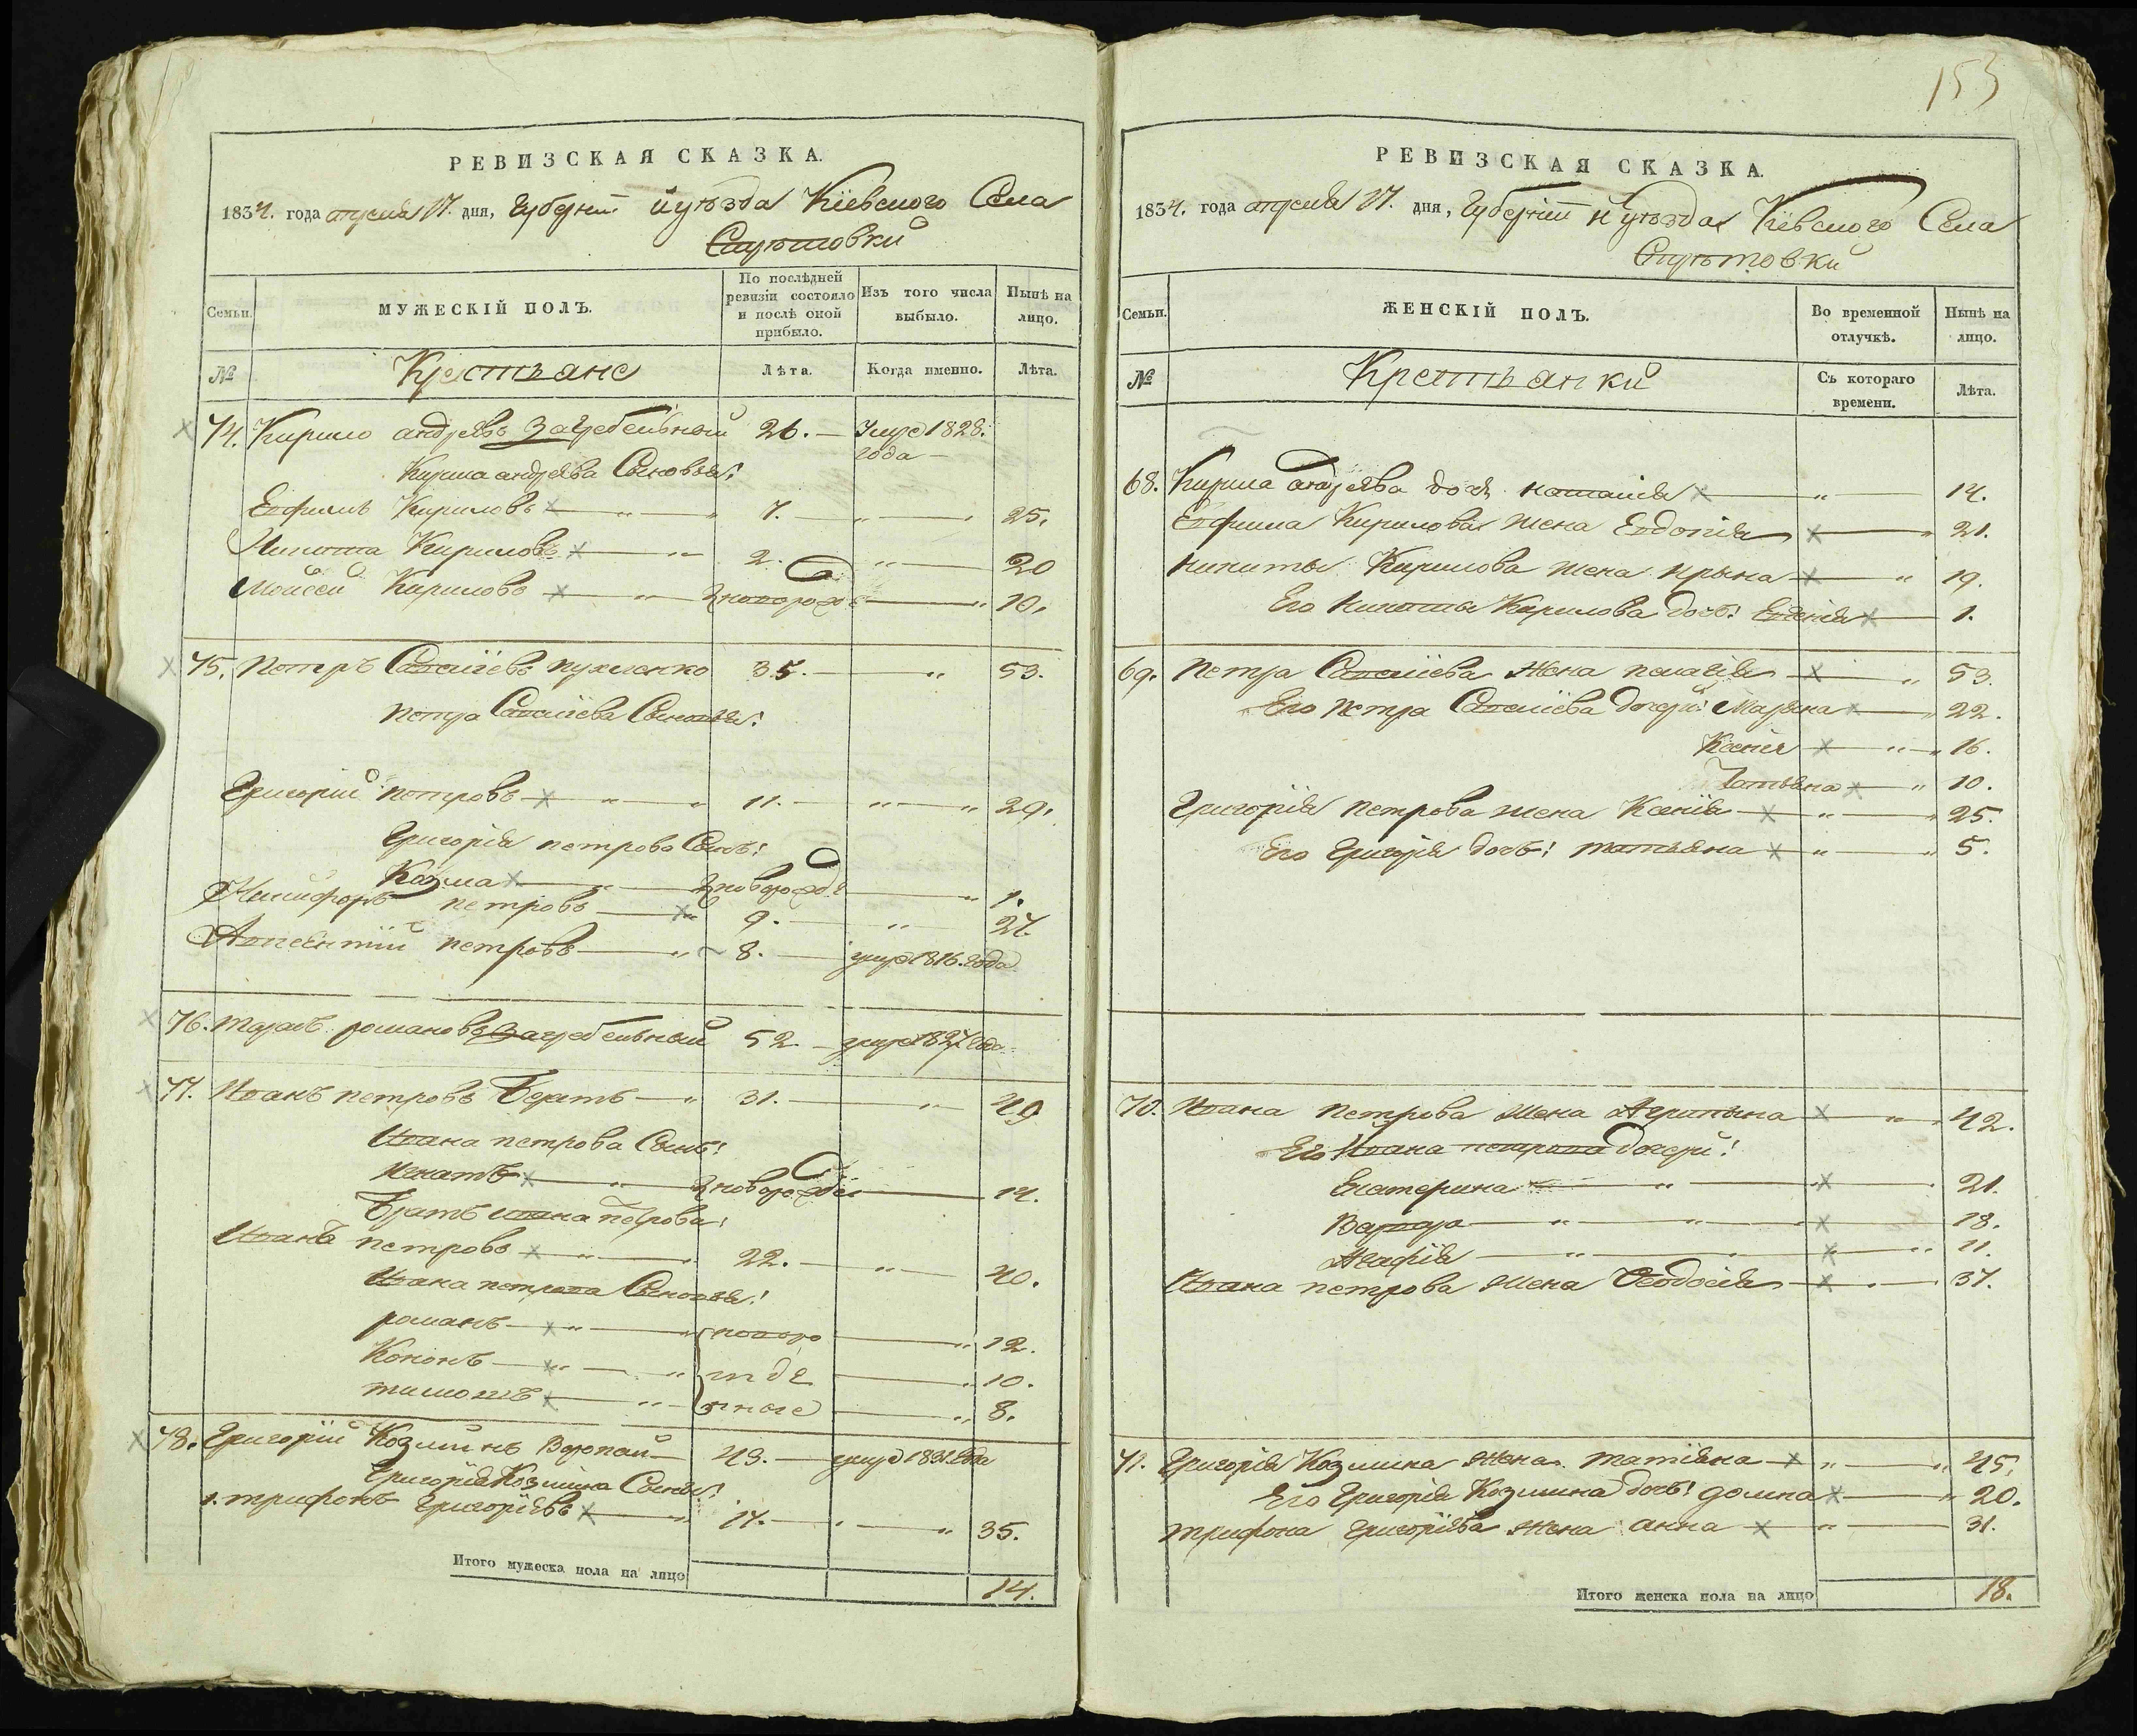 153
РЕВИЗСКАЯ СКАЗКА.
1834. года апреля 17. дня, Губернии и уезда Кіевского Села
МУЖЕСКІЙ ПОЛЪ.
Семьи.
По послѣдней ревизіи состояло и послѣ оной прибыло.
Изъ того числа выбыло.
Нынѣ на лицо.
№
Крестьяне
Лѣта.
Когда именно.
Лѣта.
74. Кирило андреевъ Загребельный 26. — Умре 1828. года —
Кирила андреева Сыновья:
Евфимъ Кириловъ × — 7. — 25.
Никита Кириловъ × — 2. — 20
Мойсей Кириловъ × — новорожде — 10.
75. Петръ Савелиевъ пухленко 35. — 53.
Петра Савелиева Сыновья:
Григорій петровъ × — 11. — 29.
Григорія петрова Сынъ:
Козма × — новорожде — 1.
Никифоръ петровъ — × 9. — 27.
петровъ — 8. — умре 1816. года
76. романовъ Загребельный 52. — умре 1827 года
77. Иванъ петровъ Братъ — 31. — 49
Ивана петрова Сынъ:
Игнатъ × — новорожде — 14.
Братъ Ивана петрова:
Иванъ петровъ × — 22. — 40.
Ивана петрова Сыновья:
романъ — × — новоро — 12.
Кононъ — × — 10.
× — 8.
78. Григорій Козминъ 49. — умре 1831 года
Григорія Козмина Сынъ:
1. трифонъ Григоріевъ × — 17. — 35.
Итого мужеска пола на лицо 14.
РЕВИЗСКАЯ СКАЗКА.
1834. года апреля 17. дня, Губерніи и уезда Кіевского Села
Семьи.
ЖЕНСКІЙ ПОЛЪ.
Во временной отлучкѣ.
Нынѣ на лицо.
№
Крестьянки
Съ котораго времени.
Лѣта.
68. Кирила андреева дочь наталія × — 14.
Евфима Кирилова жена Евдокія × — 21.
никиты Кирилова жена ирына × — 19.
Его никиты Кирилова дочь: × — 1.
69. Петра Савелиева жена пелагія — × — 53.
Его петра Савелиева дочери: Марына × — 22.
Ксенія × — 16.
Татьяна × — 10.
Григорія петрова жена Ксенія — × — 25.
Его Григорія дочь: татьяна × — 5.
70. Ивана петрова жена Агрипына × — 42.
Его Ивана петрова дочери:
Екатерина — × — 21.
Варвара — × — 18.
Агафія — × — 11.
Ивана петрова жена Феодосія — × — 37.
71. Григорія Козмина жена татіяна — × — 45.
Его Григорія Козмина дочь: домна × — 20.
трифона григоріева жена анна — × — 31.
Итого женска пола на лицо 18.